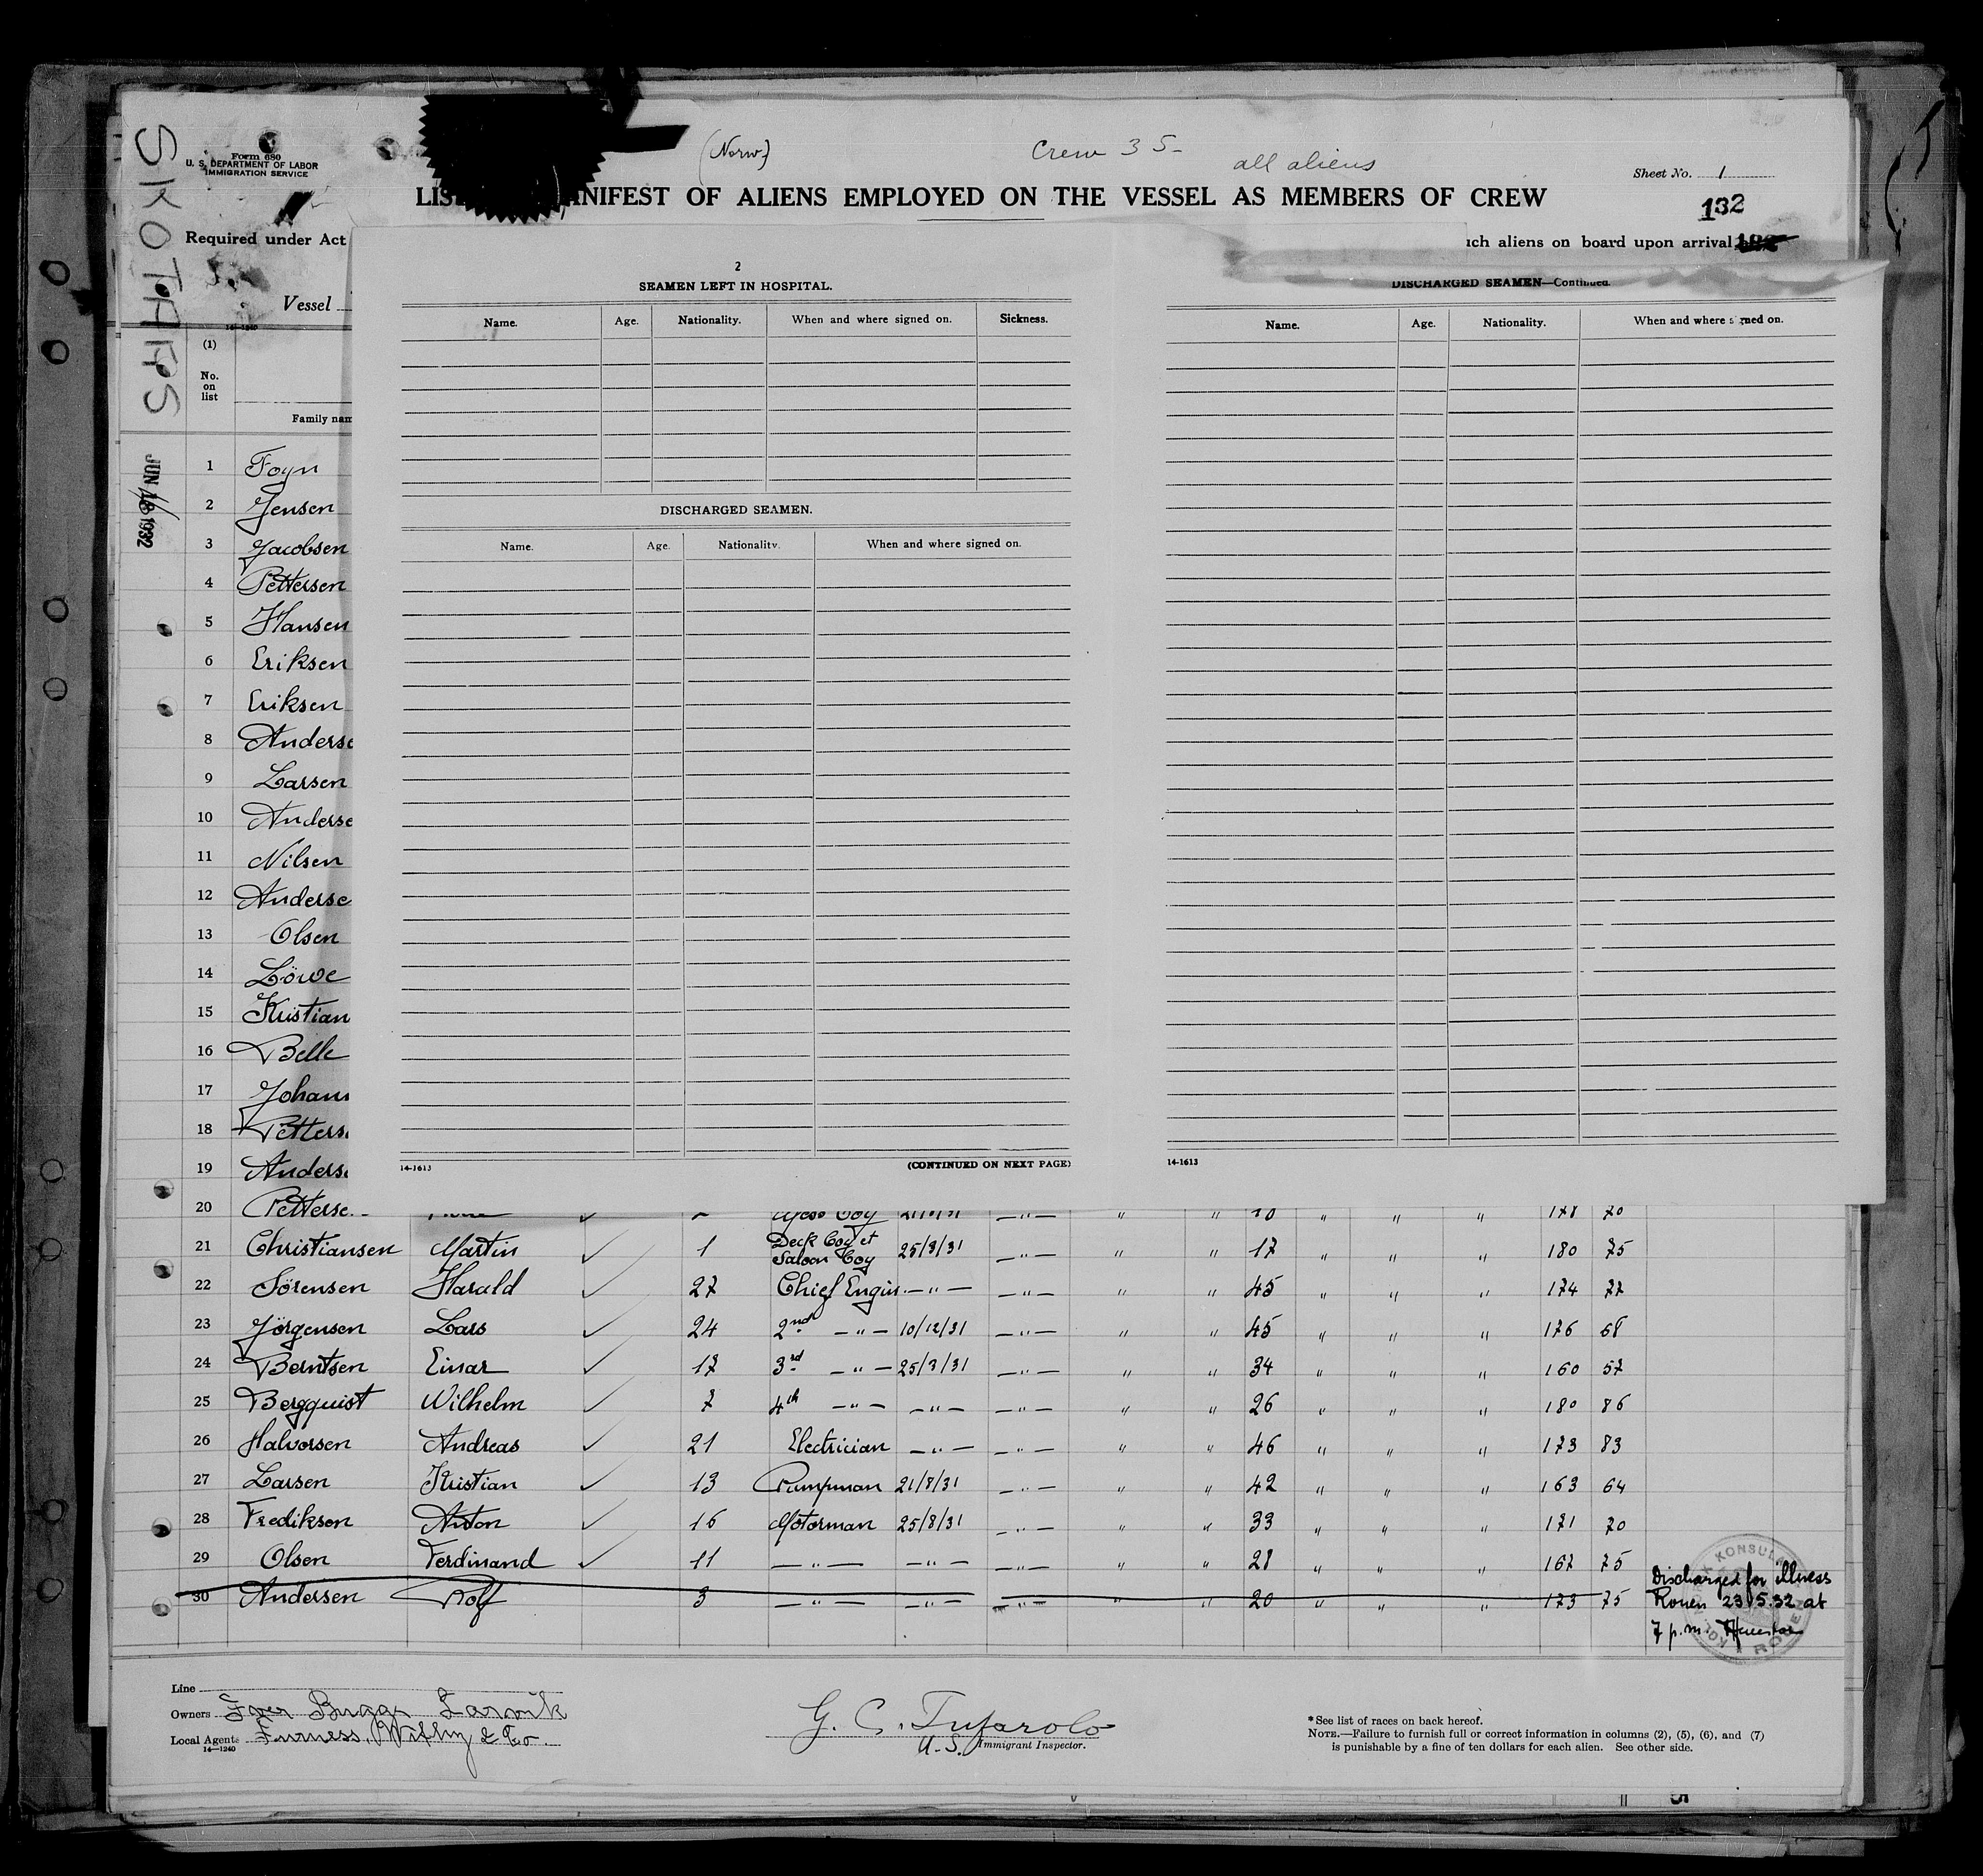 SKOTAAS
JUN 18 1932
Form 680
U. S. DEPARTMENT OF LABOR
IMMIGRATION SERVICE
(Norw.)
Crew 35-
all aliens
Sheet No. 1
LIS NIFEST OF ALIENS EMPLOYED ON THE VESSEL AS MEMBERS OF CREW
132
Required under Act
uch aliens on board upon arrival
Vessel
(1)
No.
on
list
Family nam
2
SEAMEN LEFT IN HOSPITAL.
Name. Age. Nationality. When and where signed on. Sickness.
DISCHARGED SEAMEN.
Name. Age. Nationality. When and where signed on.
14-1613 (CONTINUED ON NEXT PAGE)
DISCHARGED SEAMEN—Continued.
Name. Age. Nationality. When and where signed on.
14-1613
1 Foyn
2 Jensen
3 Jacobsen
4 Pettersen
5 Hansen
6 Eriksen
7 Eriksen
8 Anderse
9 Larsen
10 Anderse
11 Nilsen
12 Anderse
13 Olsen
14 Löwe
15 Kristian
16 Belle
17 Johans
18 Petterse
19 Anderse
20 Petterse Mess boy 21/8/31 —"— " " " " " 178 70
21 Christiansen Martin ✓ 1 Deck boy et Saloon boy 25/8/31 —"— " " 17 " " " 180 75
22 Sörensen Harald ✓ 27 Chief Engin. —"— —"— " " 45 " " " 174 77
23 Jörgensen Lars ✓ 24 2nd —"— 10/12/31 —"— " " 45 " " " 176 68
24 Berntsen Einar ✓ 17 3rd —"— 25/8/31 —"— " " 34 " " " 160 57
25 Bergquist Wilhelm ✓ 7 4th —"— —"— —"— " " 26 " " " 180 86
26 Halvorsen Andreas ✓ 21 Electrician —"— —"— " " 46 " " " 173 83
27 Larsen Kristian ✓ 13 Pumpman 21/8/31 —"— " " 42 " " " 163 64
28 Fredikson Anton ✓ 16 Motorman 25/8/31 —"— " " 33 " " " 171 70
29 Olsen Ferdinand ✓ 11 —"— —"— —"— " " 28 " " " 167 75
30 Andersen Rolf 3 —"— —"— —"— " " 20 " " " 173 75
Discharged for illness
Rouen 23/5.32 at
7 p.m.
KONSULA
ROUEN
Line
Owners Iver Bugge Larvik
Local Agents Furness, Withy & Co.
14—1240
G. C. Tufarolo
U.S. Immigrant Inspector.
* See list of races on back hereof.
NOTE.—Failure to furnish full or correct information in columns (2), (5), (6), and (7)
is punishable by a fine of ten dollars for each alien. See other side.